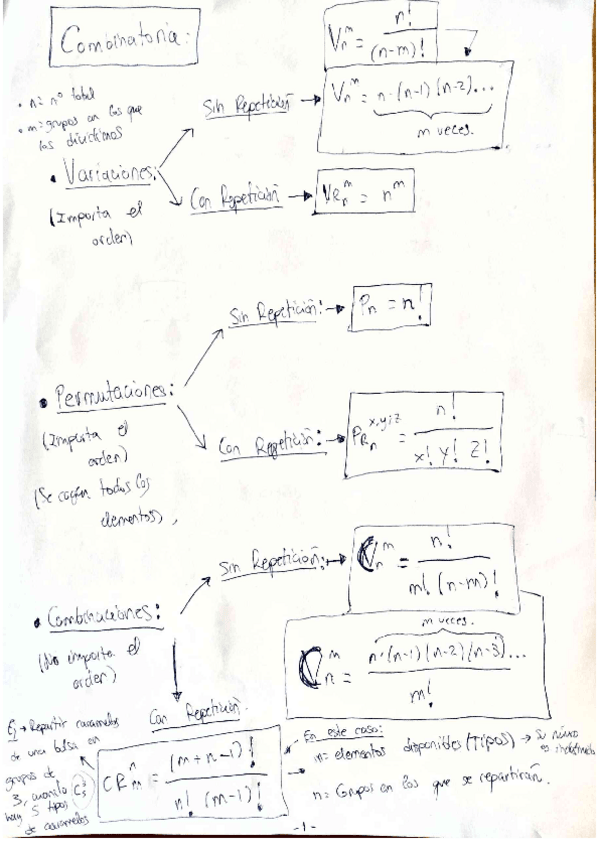 Combinatoria:
• n = nº total
• m = grupos en los que
los dividimos
• Variaciones:
(Importa el
orden)
Sin Repetición →
V_n^m = n! / (n-m)!
V_n^m = n·(n-1)(n-2)...
m veces.
Con Repetición →
VR_n^m = n^m
• Permutaciones:
(Importa el
orden)
(Se cogen todos los
elementos),
Sin Repetición: →
P_n = n!
Con Repetición: →
PR_n^{x,y,z} = n! / x! y! z!
• Combinaciones:
(No importa el
orden)
Sin Repetición: →
C_n^m = n! / m! (n-m)!
m veces.
C_n^m = n·(n-1)(n-2)(n-3)... / m!
Con Repetición.
CR_m^n = (m+n-1)! / n! (m-1)!
Ej → Repartir caramelos
de una bolsa en
grupos de
3, cuando
hay 5 tipos
de caramelos
En este caso:
m = elementos disponibles (Tipos) → Su número
es indefinido
n = Grupos en los que se repartirán.
-1-